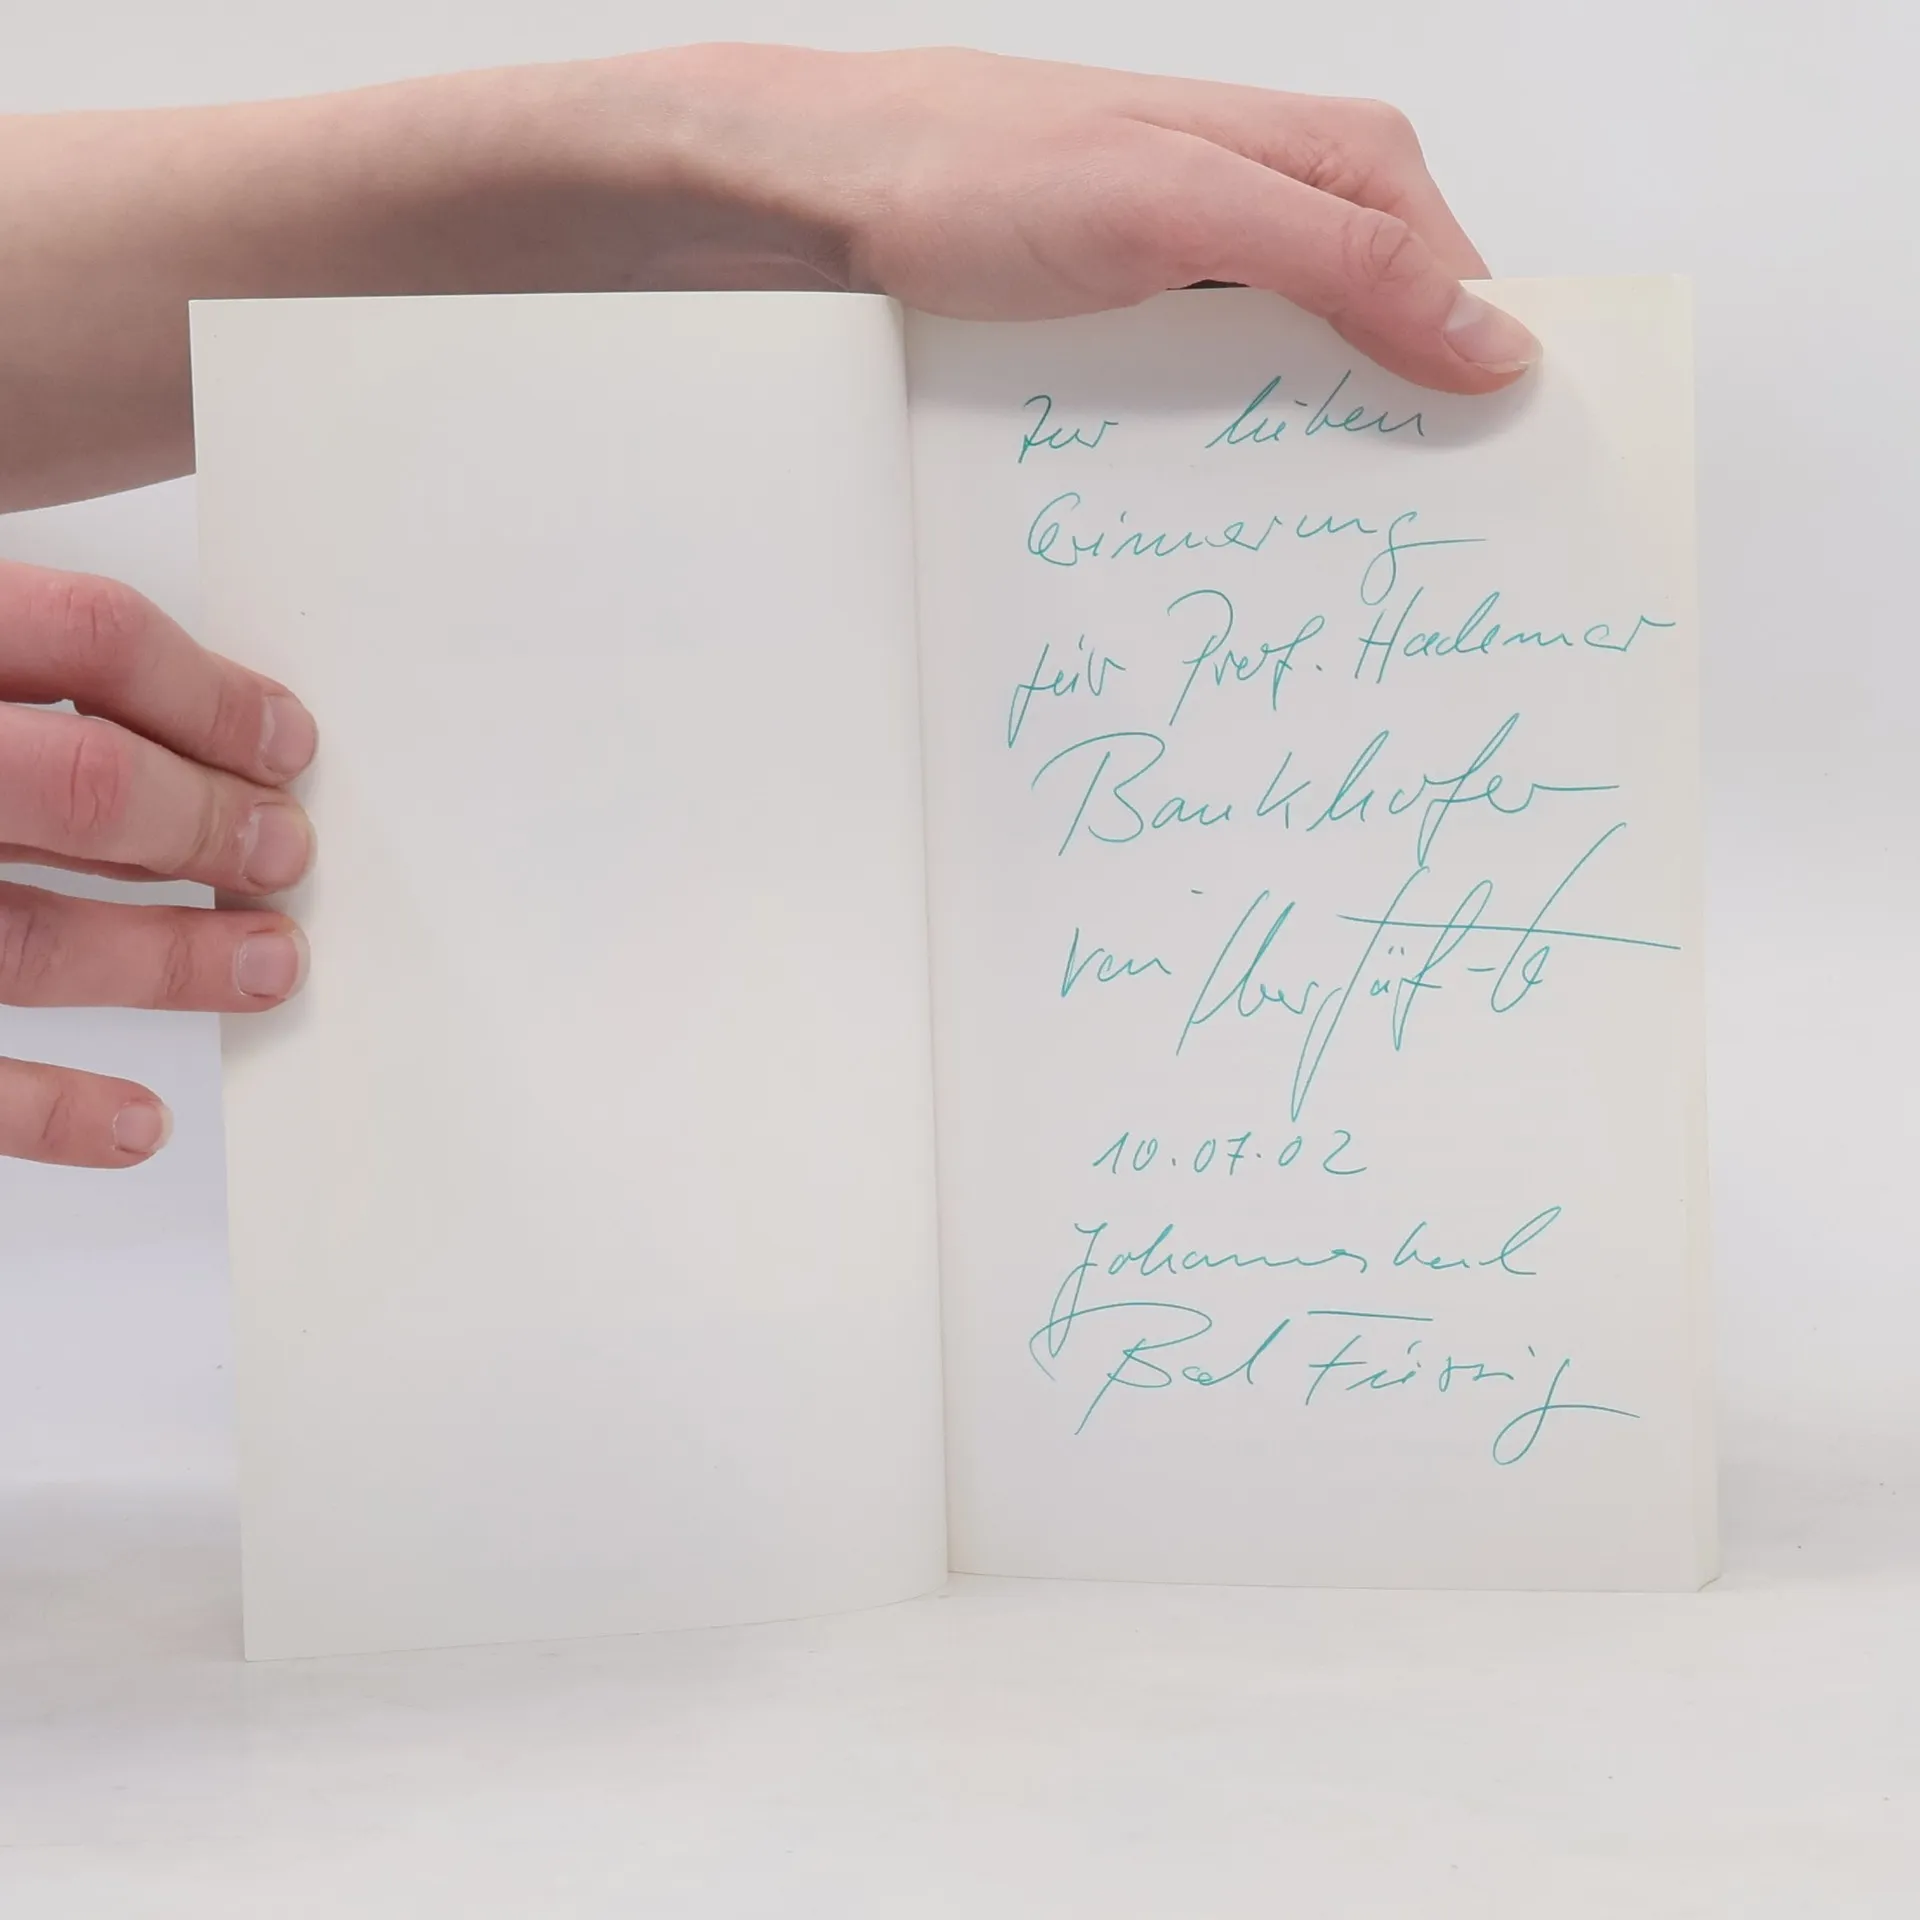 Zur lieben
Erinnerung
für Prof. Hademar
Bankhofer
von
10.07.02
Johannesbad
Bad Füssing